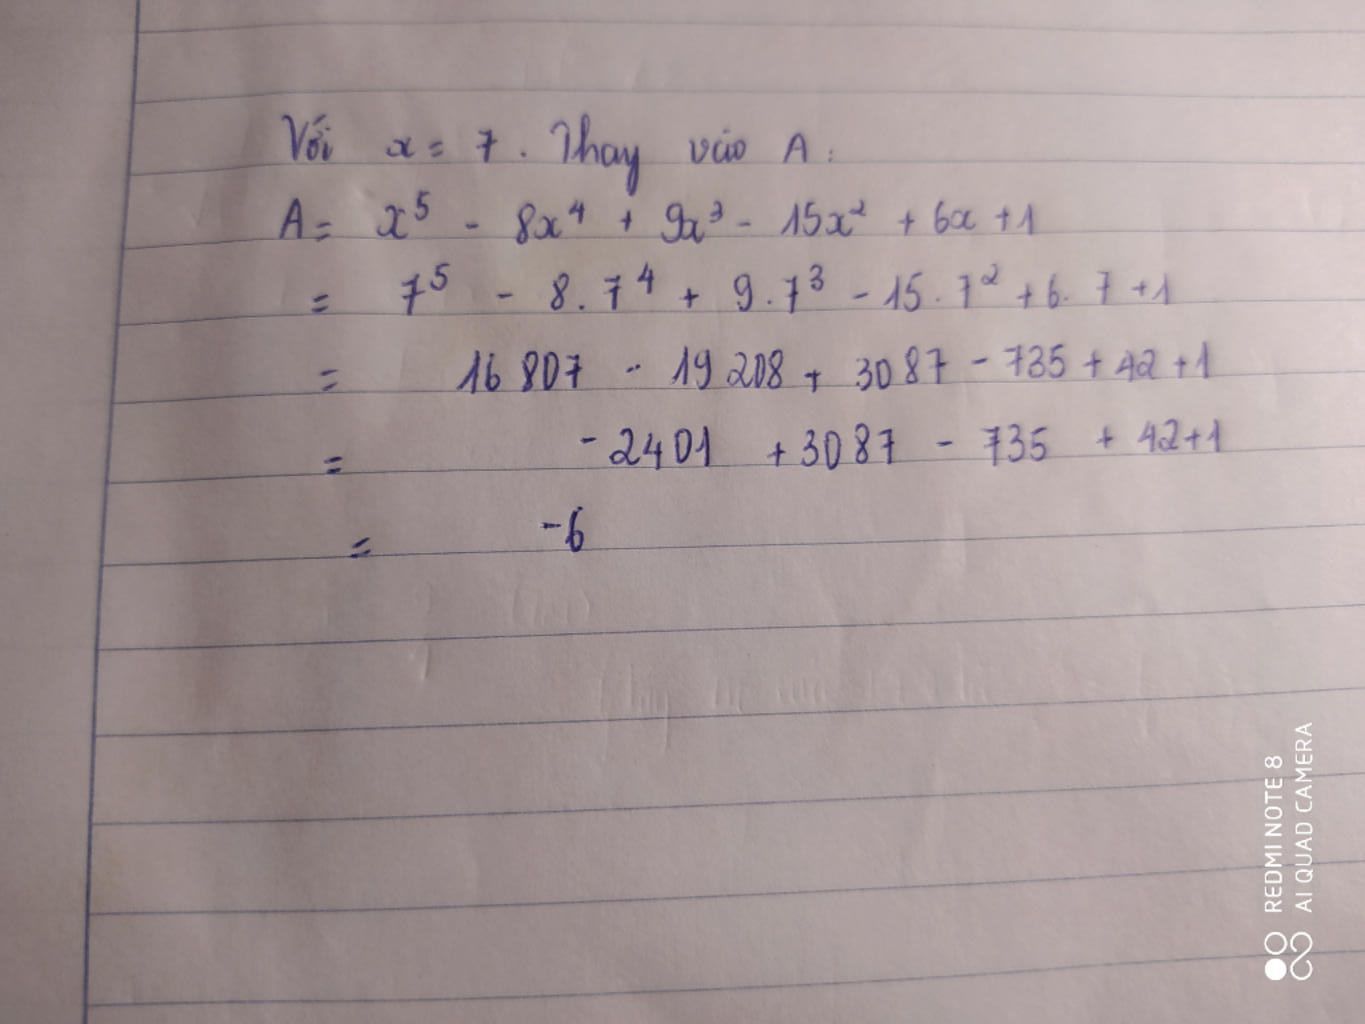 Với x = 7. Thay vào A:
A = x⁵ - 8x⁴ + 9x³ - 15x² + 6x + 1
= 7⁵ - 8.7⁴ + 9.7³ - 15.7² + 6.7 + 1
= 16807 - 19208 + 3087 - 735 + 42 + 1
= -2401 + 3087 - 735 + 42 + 1
= -6
REDMI NOTE 8
AI QUAD CAMERA